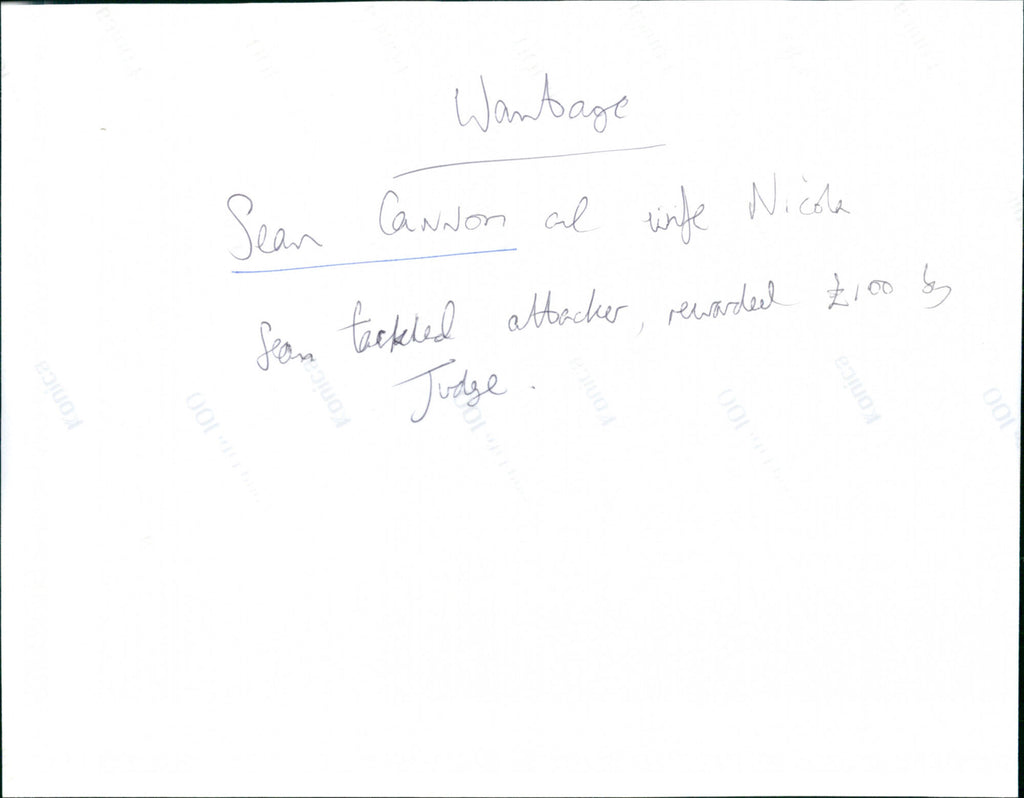 Wantage
Sean Cannon and wife Nicola
Sean tackled attacker, rewarded £100 by
Judge.
konica
konica
konica
konica
100
100
100
100